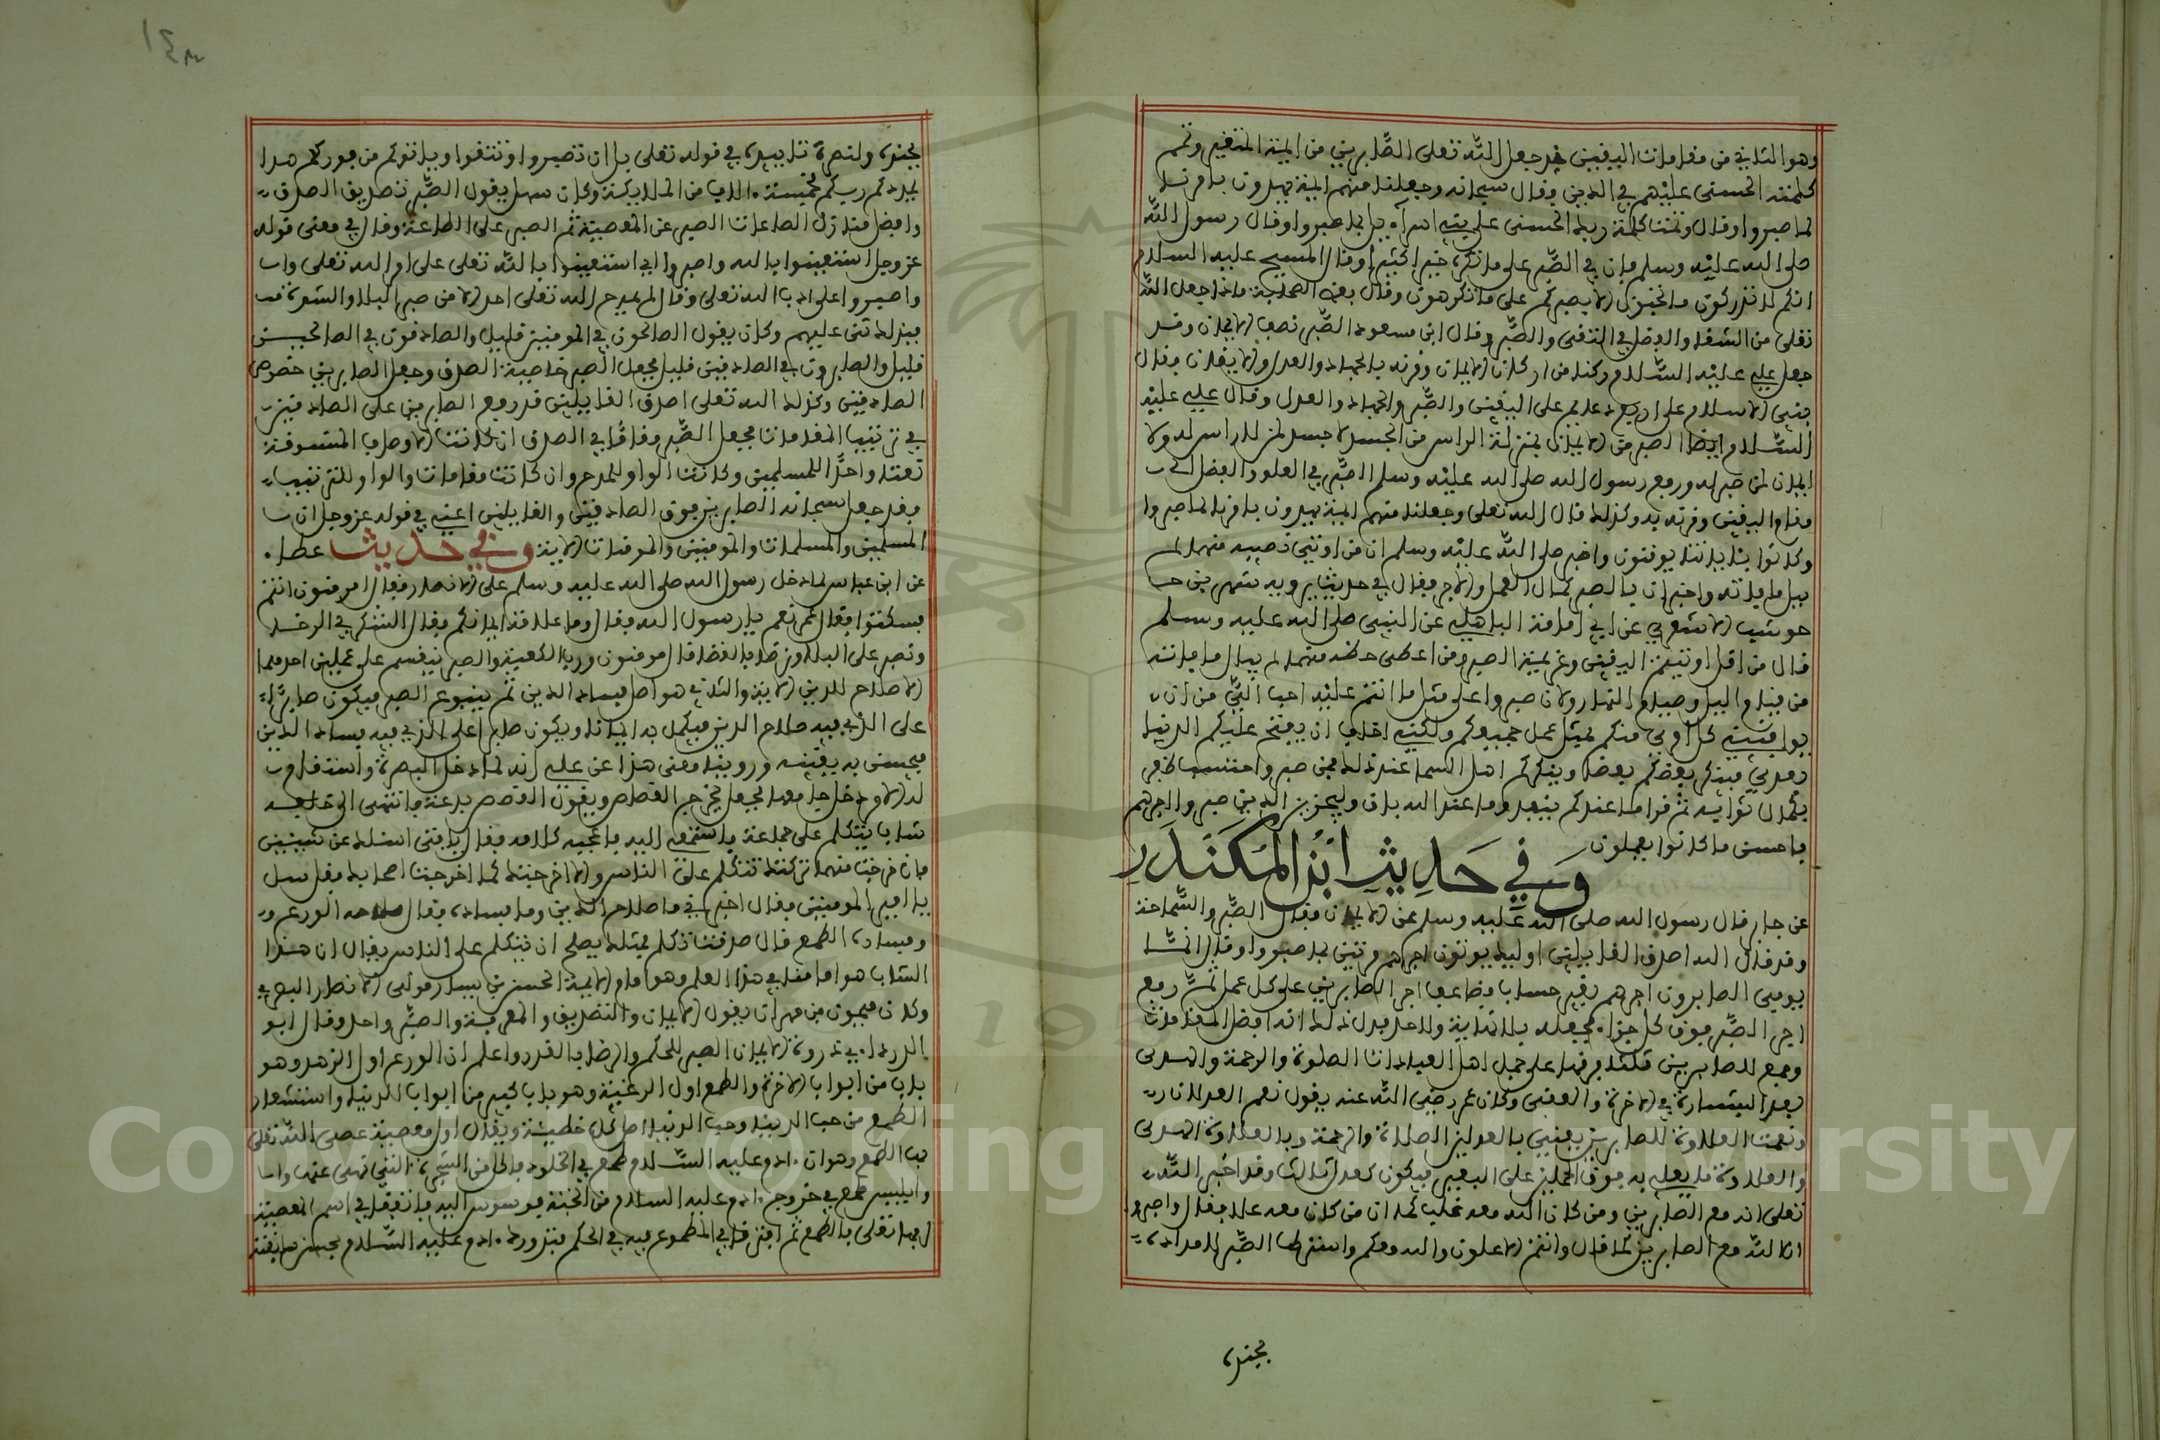 وهو الثاني من مقامات اليقين قد جعل الله تعلى الصابرين من ايمة المتقين وتمم
كلمته الحسنى عليهم في الدين فقال سبحانه وجعلنا منهم ايمة يهدون بامرنا
لما صبروا وقال وتمت كلمة ربك الحسنى على بني اسراءيل بما صبروا وقال رسول الله
صلى الله عليه وسلم فان في الصبر على ما تكره خيرا كثيرا وقال المسيح عليه السلام
انكم لا تدركون ما تحبون الا بصبركم على ما تكرهون وقال بعض الصحابة ماذا جعل الله
تعلى من الشفاء والفضل في التقى والصبر وقال ابن مسعود الصبر نصف الايمان وقد
جعل علي عليه السلام ركنا من اركان الايمان وقرنه بالجهاد والعدل والايقان فقال
بني الاسلام على اربع دعايم على اليقين والصبر والجهاد والعدل وقال علي عليه
السلام ايضا الصبر من الايمان بمنزلة الراس من الجسد لا جسد لمن لا راس له ولا
ايمان لمن لا صبر له ورفع رسول الله صلى الله عليه وسلم الصبر في العلو والفضل الى
مقام اليقين وقرنه به وكذلك قال الله تعلى وجعلنا منهم ايمة يهدون بامرنا لما صبروا
وكانوا بئاياتنا يوقنون واخبر صلى الله عليه وسلم ان من اوتي نصيبه منهما لم
يبال ما فاته واخبر ان بالصبر كمال العمل والاجر فقال في حديث يرويه شهر بن
حوشب الاشعري عن ابي امامة الباهلي عن النبي صلى الله عليه وسلم
قال من اقل ما اوتيتم اليقين وعزيمة الصبر ومن اعطي حظه منهما لم يبال ما فاته
من قيام اليل وصيام النهار ولان صبروا على مثل ما انتم عليه احب الي من ان
يوافيني كل امرئ منكم بمثل عمل جميعكم ولكني اخاف ان يفتح عليكم الدنيا
بعدي فينكر بعضكم بعضا وينكركم اهل السما عند ذلك فمن صبر واحتسب ظفر
بكمال ثوابه ثم قرا ما عندكم ينفد وما عند الله باق وليجزين الذين صبروا اجرهم
باحسن ما كانوا يعملون
وَفي حَدِيثِ ابْنِ المُنكَدِر
عن جابر قال رسول الله صلى الله عليه وسلم عن الايمان فقال الصبر والسماحة
وقد قال الله اصدق القايلين اوليك يوتون اجرهم مرتين بما صبروا وقال انما
يوفى الصابرون اجرهم بغير حساب فضاعف اجر الصابرين على كل عمل ثم رفع
اجر الصبر فوق كل جزاء فجعله بلا نهاية ولا حد فدل ذلك انه افضل المقامات
وجمع للصابرين ثلاثا فرقها على جمل اهل العبادات الصلوة والرحمة والهدى
بعد البشارة في الاخرة والعقبى وكان عمر رضي الله عنه يقول نعم العدلان
ونعمت العلاوة للصابرين يعني بالعدلين الصلاة والرحمة وبالعلاوة الهدى
والعلاوة ما يعلى به فوق الحملين على البعير فيكون كعدل ثالث وقد اخبر الله
تعلى انه مع الصابرين ومن كان الله معه غلب كما ان من كان معه علا فقال واصبروا
ان الله مع الصابرين كما قال وانتم الاعلون والله معكم واشترط الصبر لامداده
بجنده
بجنده ولنصرة تاييده في قوله تعلى بلى ان تصبروا وتتقوا وياتوكم من فورهم هذا
يمددكم ربكم بخمسة ءالاف من الملايكة وكان سهل يقول الصبر تصديق الصدق
وافضل منازل الطاعات الصبر عن المعصية ثم الصبر على الطاعة وقال في معنى قوله
عز وجل استعينوا بالله واصبروا اي استعينوا بالله تعلى على امر الله تعلى
واصبروا على ادب الله تعلى وقال لم يمدح الله تعلى احدا الا من صبر للبلاء والشدة
فبذلك اثنى عليهم وكان يقول الصالحون في المومنين قليل والصادقون في الصالحين
قليل والصابرون في الصادقين قليل فجعل الصبر خاصية الصدق وجعل الصابرين خصوص
الصادقين وكذلك الله تعلى اصدق القايلين قد رفع الصابرين على الصادقين
في ترتيب المقامات فجعل الصبر مقاما في الصدق ان كانت الاوصاف المنسوقة
نعتا واحدا للمسلمين وكانت الواو للمدح وان كانت مقامات والواو للترتيب
فقد جعل سبحانه الصابرين فوق الصادقين والقانتين اعني في قوله عز وجل ان
المسلمين والمسلمات والمومنين والمومنات الاية وفي حديث عطاء
عن ابن عباس لما دخل رسول الله صلى الله عليه وسلم على الانصار فقال امومنون انتم
فسكتوا فقال عمر نعم يا رسول الله فقال وما علامة ايمانكم فقال الشكر في الرخاء
ونصبر على البلاء ونرضى بالقضاء قال مومنون ورب الكعبة والصبر ينقسم على عملين احدهما
لا صلاح للدين الا به والثاني هو اصل فساد الدين ثم يتنوع الصبر فيكون صابرا
على الذي فيه صلاح الدين فيكمل به ايمانه ويكون صابرا على الذي فيه فساد الدين
فيحسن به يقينه وروينا معنى هذا عن علي انه لما دخل البصرة واستقام
له الامر دخل جامعها فجعل يخرج القصاص ويقول القصص بدعة فانتهى الى حلقة
شاب يتكلم على جماعة فاستمع اليه فاعجبه كلامه فقال يا فتى اسئلك عن شيئين
فان خرجت منهما تركتك تتكلم على الناس والا اخرجتك كما اخرجت اصحابك فقال سل
يا امير المومنين فقال اخبرني ما صلاح الدين وما فساده فقال صلاحه الورع
وفساده الطمع قال صدقت تكلم فمثلك يصلح ان يتكلم على الناس يقال ان هذا
الشاب هو امامنا في هذا العلم وهو امام الايمة الحسن بن يسار مولى الانصار البصري
وكان ميمون بن مهران يقول الايمان والتصديق والمعرفة والصبر واحد وقال ابو
الدرداء ذروة الايمان الصبر للحكم والرضا بالقدر واعلم ان الورع اول الزهد وهو
باب من ابواب الاخرة والطمع اول الرغبة وهو باب كبير من ابواب الدنيا واستشعار
الطمع من حب الدنيا وحب الدنيا راس كل خطيئة ويقال اول معصية عصي الله تعلى
بها الطمع وهو ان ءادم عليه السلام طمع في الخلود فاكل من الشجرة التي نهي عنها
وابليس طمع في خروج ءادم عليه السلام من الجنة فوسوس اليه فاتفقا في اسم المعصية